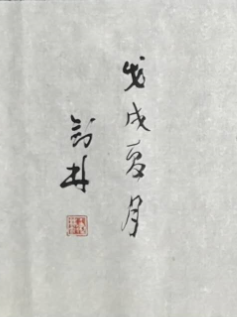 戊戌夏月
剑林